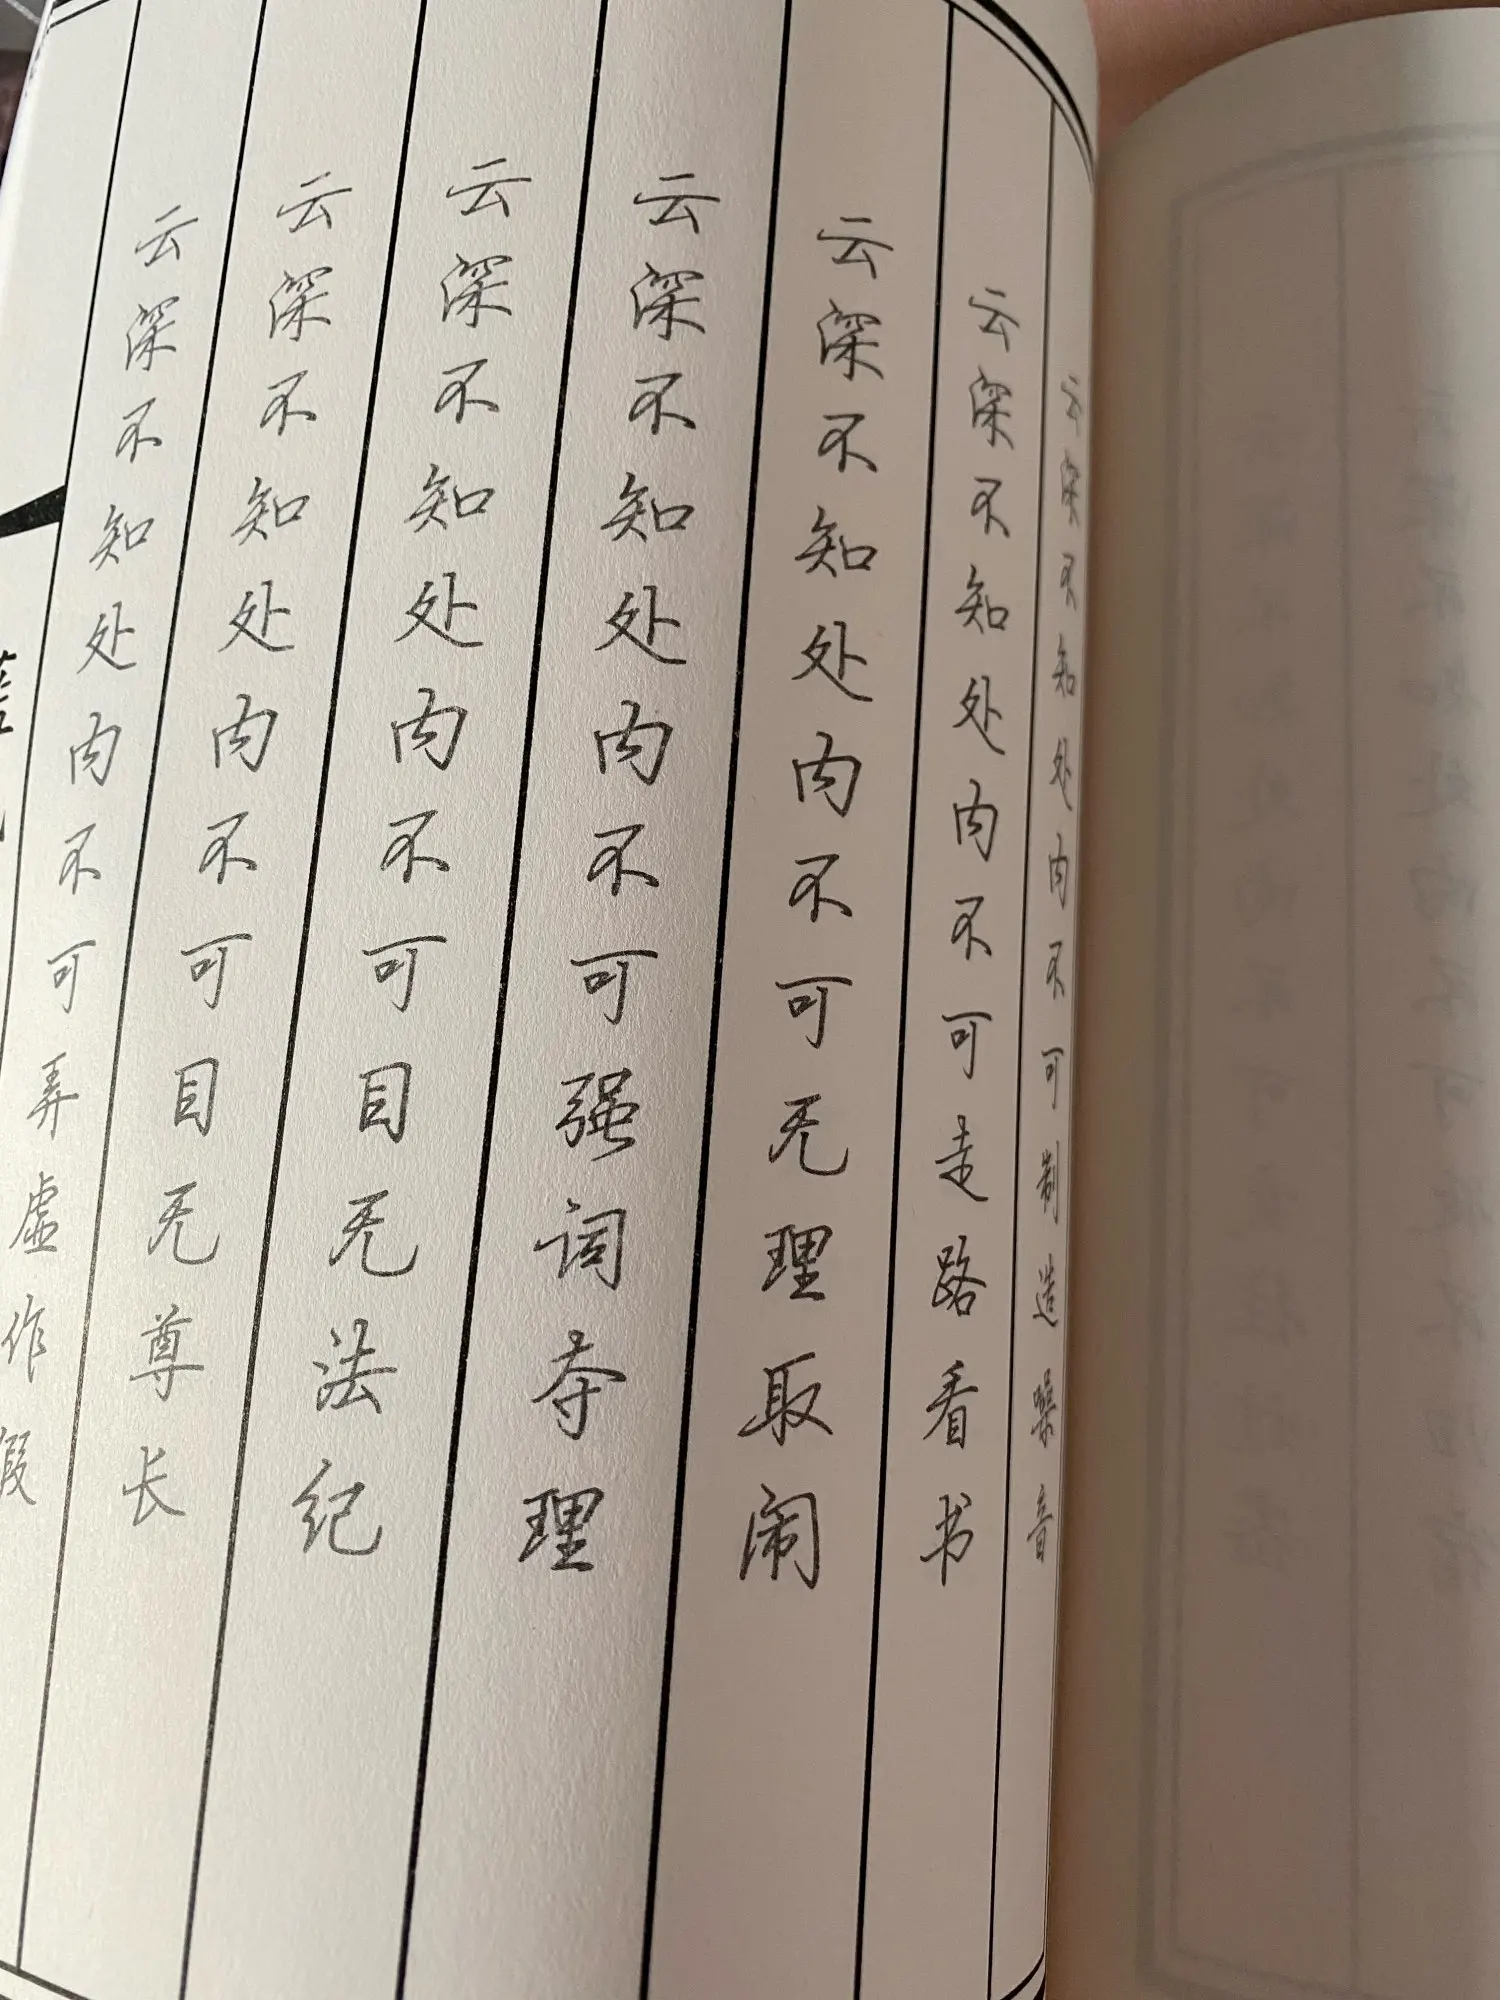 云深不知处内不可制造噪音
云深不知处内不可走路看书
云深不知处内不可无理取闹
云深不知处内不可强词夺理
云深不知处内不可目无法纪
云深不知处内不可目无尊长
云深不知处内不可弄虚作假